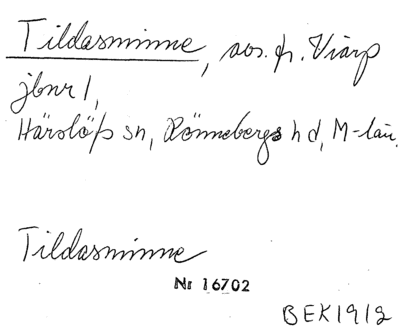 Tildasminne, avs. fr. Viarp
jbnr 1,
Härslöfs sn, Rönnebergs hd, M-län.
Tildasminne
Nr 16702
BEK 1912